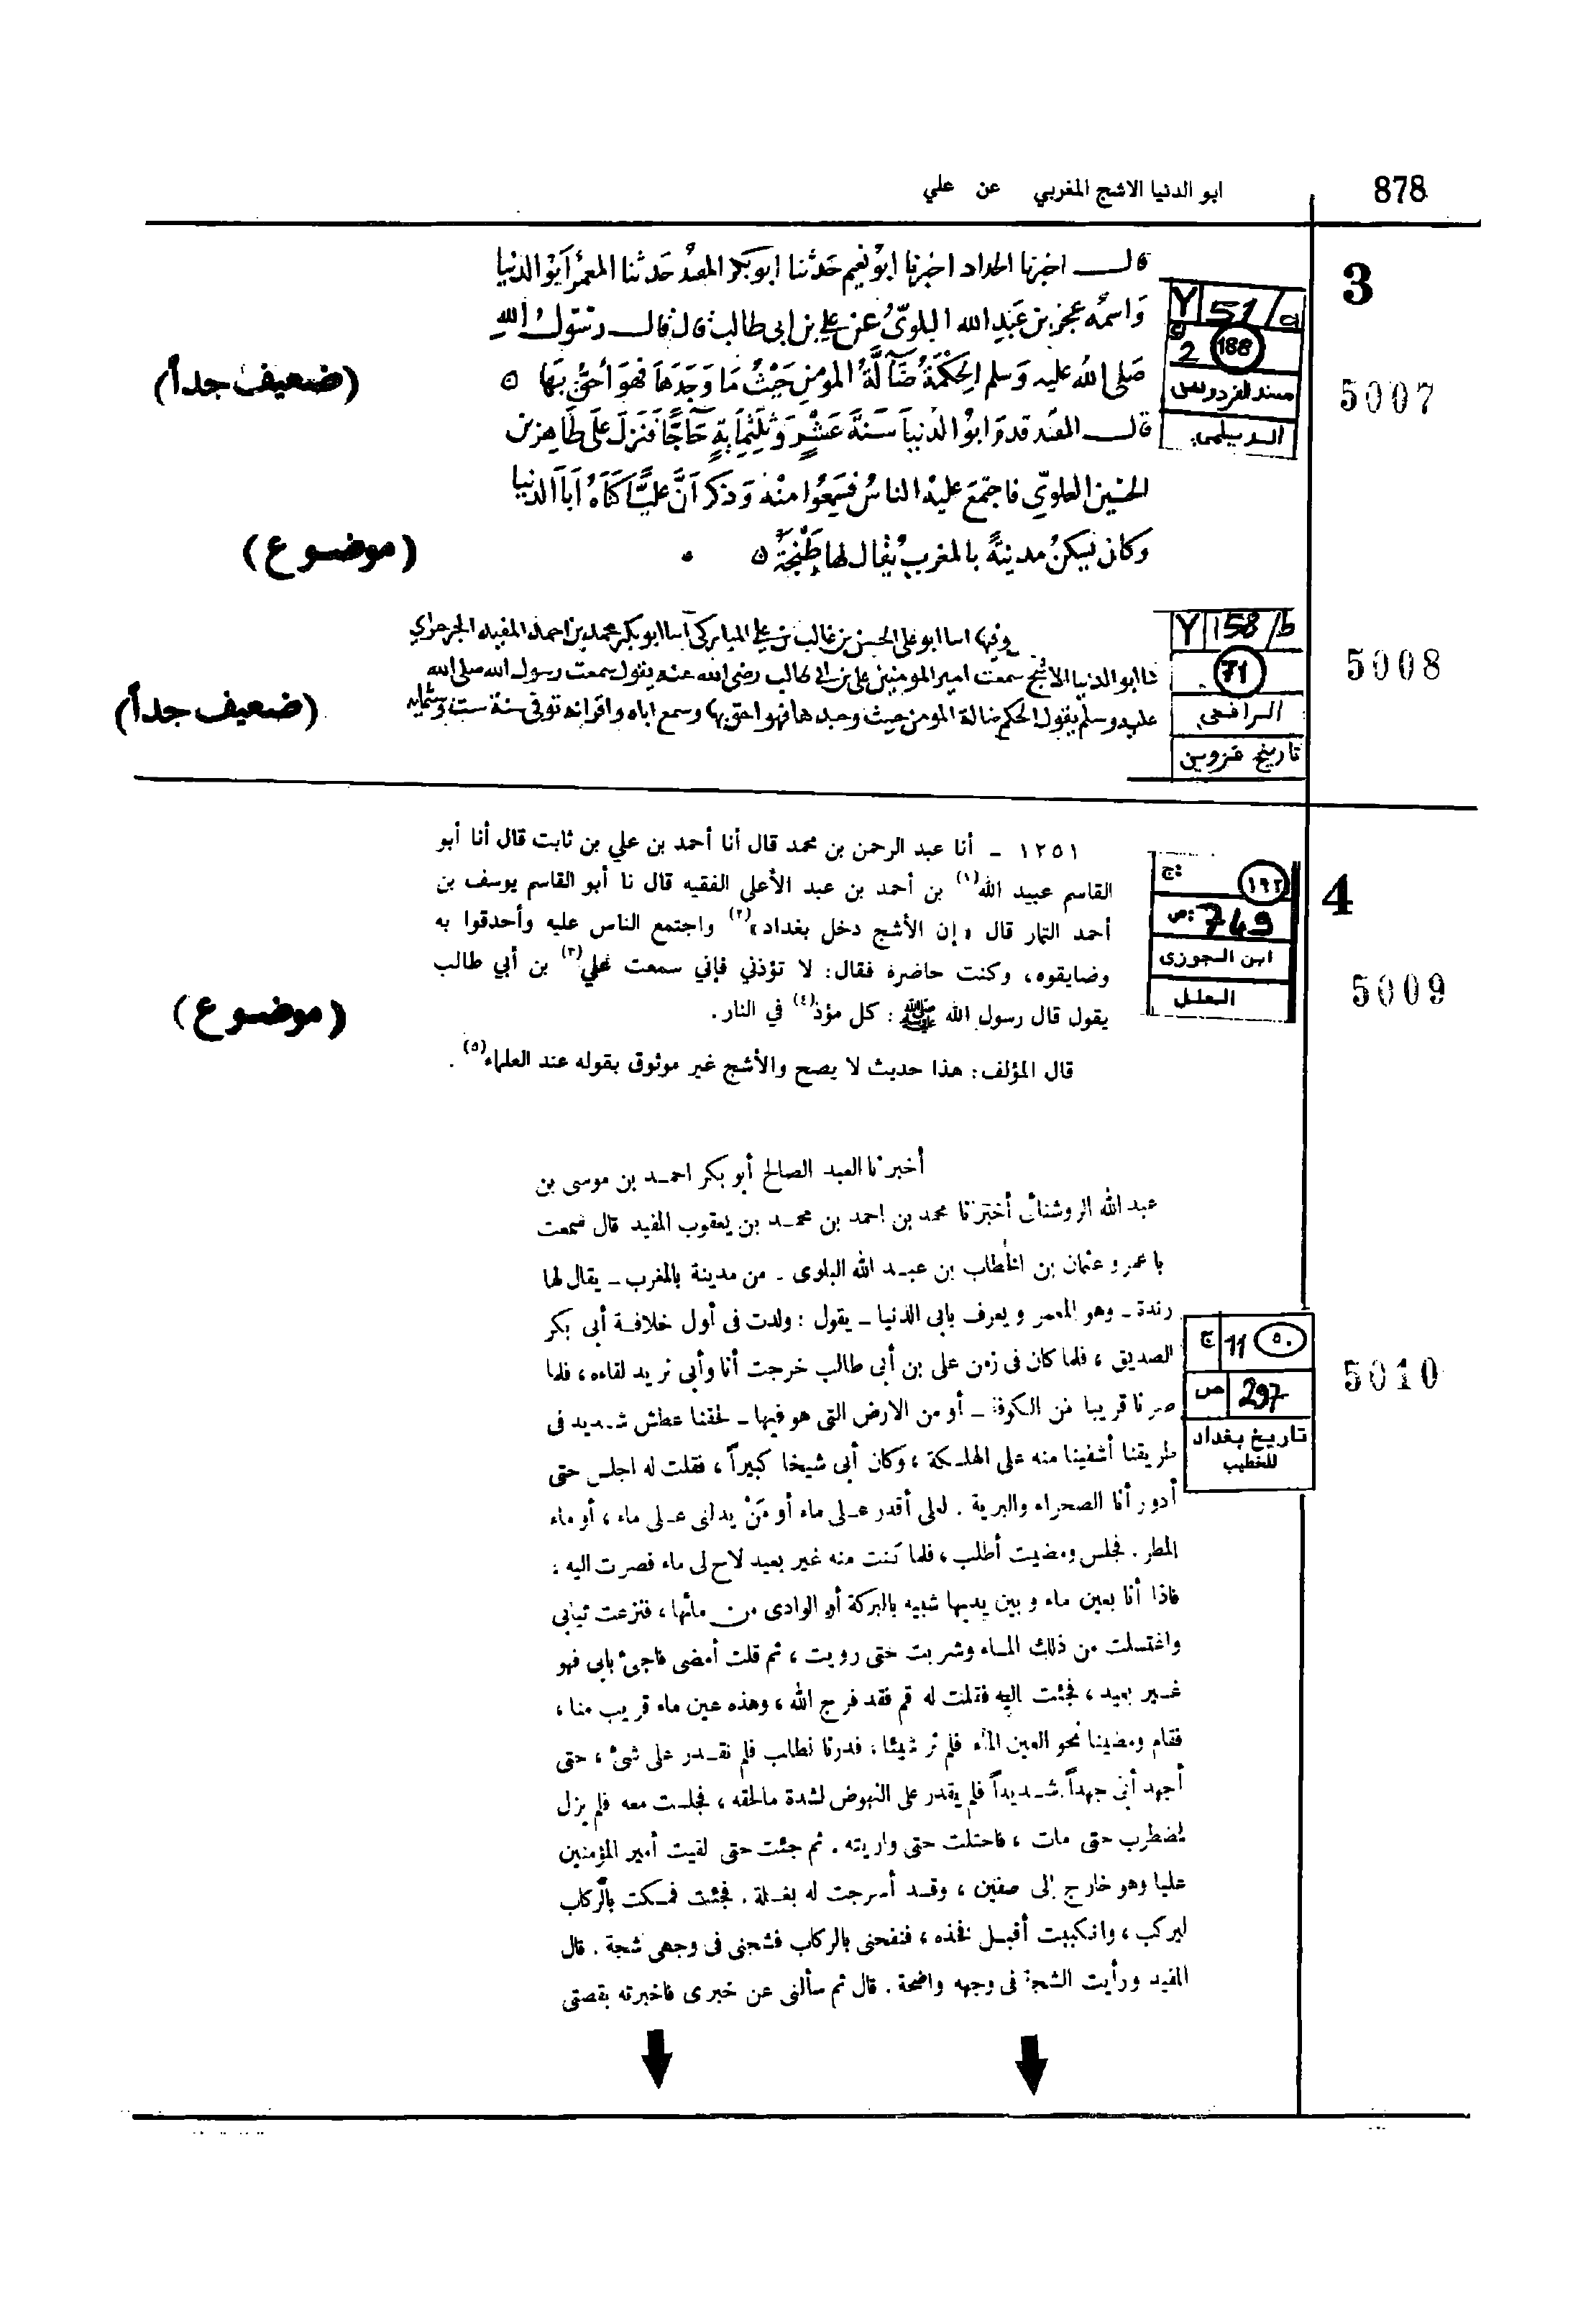 878
ابو الدنيا الاشج المغربي عن علي
3
قال اخبرنا الحداد اخبرنا ابو نعيم حدثنا ابو بكر المفيد حدثنا المعمر ابو الدنيا
واسمه عبد الله البلوي عن علي بن ابي طالب قال قال رسول الله
صلى الله عليه وسلم الحكمة ضآلة المومن حيث ما وجدها فهو أحق بها
قال المفيد قدم ابو الدنيا سنة عشر وثلثماية حاجا فنزل على طاهر بن
الحسين العلوي فاجتمع عليه الناس فسمعوا منه وذكر ان عليا كناه ابا الدنيا
وكان يسكن مدينة بالمغرب يقال لها طنجة
Y 51/a
2 188
مسند الفردوس
الديلمي
5007
(ضعيف جداً)
(موضوع)
وفيها ابو علي الحسن بن غالب بن علي المباركي ابو بكر محمد بن احمد المفيد الجرجراي
ثنا ابو الدنيا الاشج سمعت امير المومنين علي بن ابي طالب رضي الله عنه يقول سمعت رسول الله صلى الله
عليه وسلم يقول الحكم ضالة المومن حيث وجدها فهو احق بها وسمع اباه واقرانه توفي سنة ست وستمايه
Y 158/b
71
الرافعي
تاريخ قزوين
5008
(ضعيف جداً)
4
١٢٥١ - أنا عبد الرحمن بن محمد قال أنا أحمد بن علي بن ثابت قال أنا أبو
القاسم عبيد الله(١) بن أحمد بن عبد الأعلى الفقيه قال نا أبو القاسم يوسف بن
أحمد التمار قال «إن الأشج دخل بغداد»(٢) واجتمع الناس عليه وأحدقوا به
وضايقوه، وكنت حاضره فقال: لا تؤذني فإني سمعت علي(٣) بن أبي طالب
يقول قال رسول الله ﷺ: كل مؤذ(٤) في النار.
قال المؤلف: هذا حديث لا يصح والأشج غير موثوق بقوله عند العلماء(٥).
ج:
ص: 749
ابن الجوزى
العلل
5009
(موضوع)
أخبرنا العبد الصالح أبو بكر احمد بن موسى بن
عبد الله الروشنائى أخبرنا محمد بن احمد بن محمد بن يعقوب المفيد قال سمعت
با عمرو عثمان بن الخطاب بن عبد الله البلوى - من مدينة بالمغرب - يقال لها
رندة - وهو المعمر ويعرف بابى الدنيا - يقول: ولدت فى أول خلافة أبى بكر
الصديق، فلما كان فى زمن على بن أبى طالب خرجت أنا وأبى نريد لقاءه، فلما
صرنا قريبا من الكوفة - أو من الارض التى هو فيها - لحقنا عطش شديد فى
طريقنا أشفينا منه على الهلكة، وكان أبى شيخا كبيراً، فقلت له اجلس حتى
أدور أنا الصحراء والبرية. لعلى أقدر على ماء أو مَنْ يدلنى على ماء، أو ماء
المطر. فجلس ومضيت أطلب، فلما كنت منه غير بعيد لاح لى ماء فصرت اليه:
فاذا أنا بعين ماء وبين يديها شبيه بالبركة أو الوادى من مائها، فنزعت ثيابى
واغتسلت من ذلك الماء وشربت حتى رويت، ثم قلت أمضى فاجئ بابى فهو
غير بعيد، فجئت اليه فقلت له قم فقد فرج الله، وهذه عين ماء قريب منا،
فقام ومضينا نحو العين الماء فلم نر شيئا، فدرنا نطلب فلم نقدر على شئ، حتى
أجهد أبى جهداً شديداً فلم يقدر على النهوض لشدة مالحقه، فجلست معه فلم يزل
يضطرب حتى مات، فاحتلت حتى واريته. ثم جئت حتى لقيت أمير المؤمنين
عليا وهو خارج إلى صفين، وقد أسرجت له بغلة. فجئت فمسكت بالركاب
ليركب، وانكببت أقبل فخذه، فنفحنى بالركاب فشجنى فى وجهى شجة. قال
المفيد ورأيت الشجة فى وجهه واضحة. قال ثم سألنى عن خبرى فاخبرته بقصتى
ج 11 ٥٠
ص 297
تاريخ بغداد
للخطيب
5010